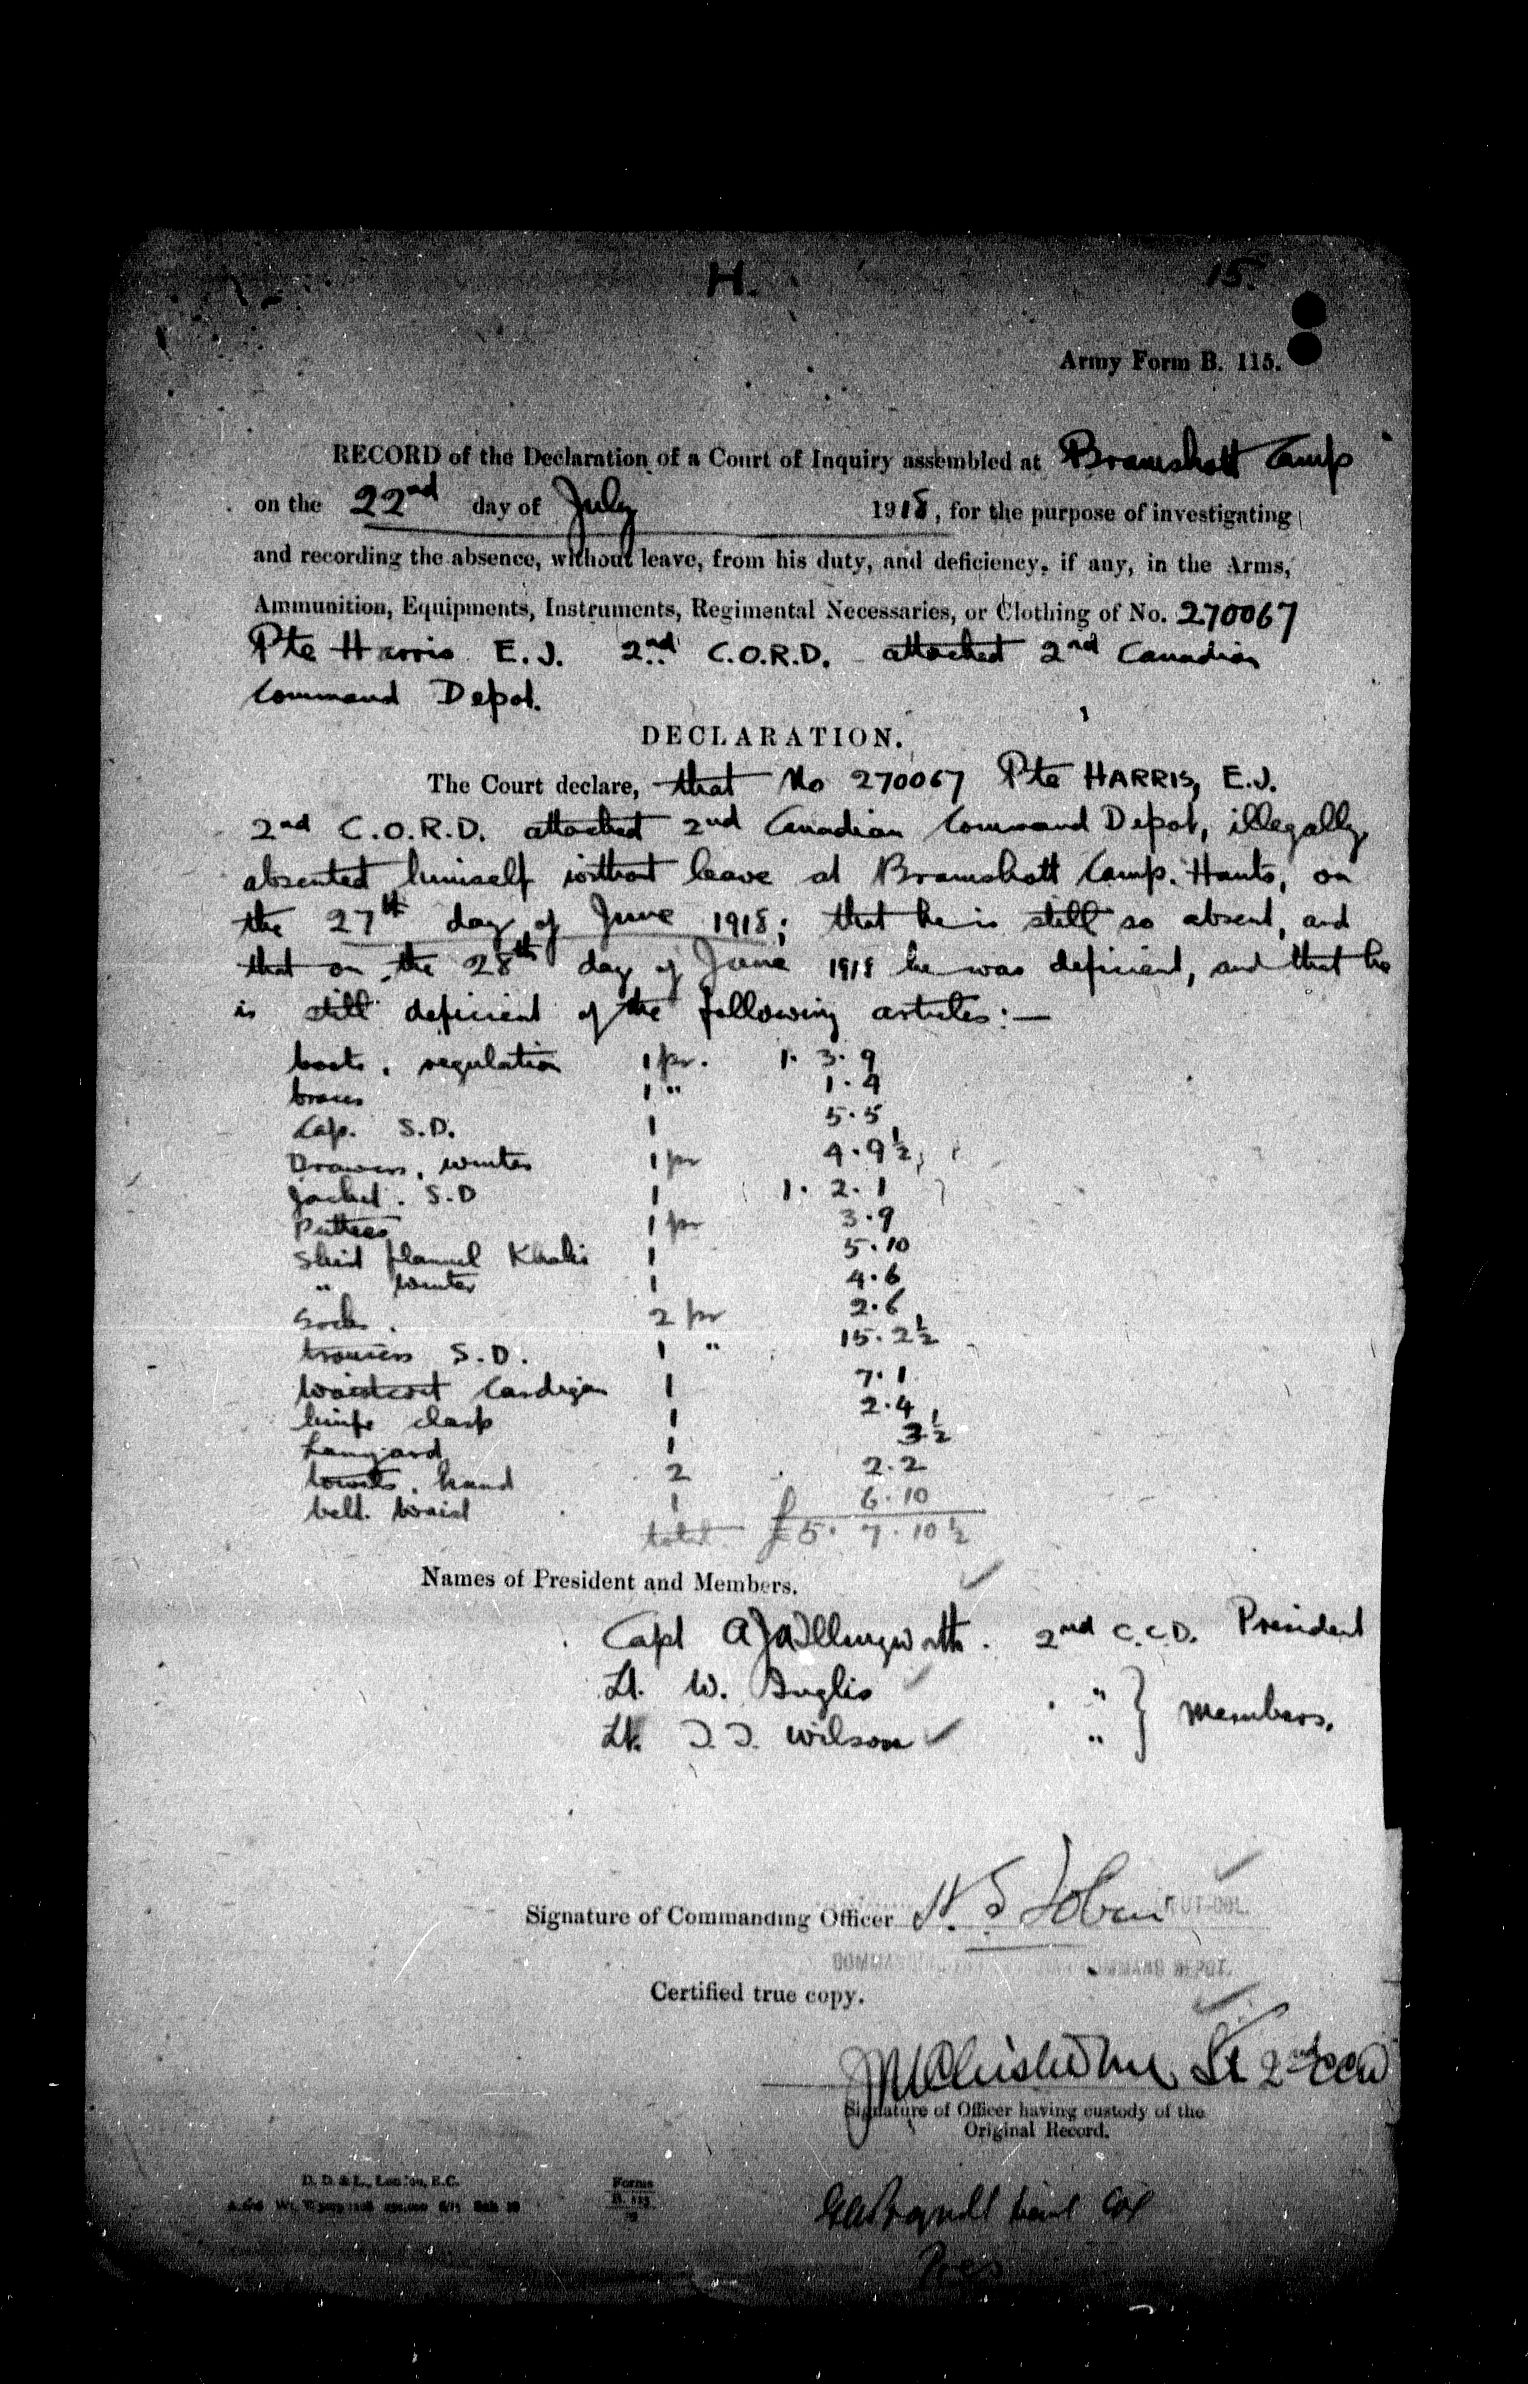 H.
15.
Army Form B. 115.
RECORD of the Declaration of a Court of Inquiry assembled at Bramshott Camp
on the 22nd day of July 1918, for the purpose of investigating
and recording the absence, without leave, from his duty, and deficiency, if any, in the Arms,
Ammunition, Equipments, Instruments, Regimental Necessaries, or Clothing of No. 270067
Pte Harris E.J. 2nd C.O.R.D. attached 2nd Canadian
Command Depot.
DECLARATION.
The Court declare, that No 270067 Pte HARRIS, E.J.
2nd C.O.R.D. attached 2nd Canadian Command Depot, illegally
absented himself without leave at Bramshott Camp. Hants, on
the 27th day of June 1918; that he is still so absent, and
that on the 28th day of June 1918 he was deficient, and that he
is still deficient of the following articles:—
boots, regulation 1 pr. 1. 3. 9
braces 1 " 1. 4
Cap. S.D. 1 5. 5
Drawers, winter 1 pr 4. 9½
Jacket. S.D 1 1. 2. 1
Puttees 1 pr 3. 9
Shirt flannel Khaki 1 5. 10
" winter 1 4. 6
Socks. 2 pr 2. 6
trousers S.D. 1 " 15. 2½
Waistcoat Cardigan 1 7. 1
knife clasp 1 2. 4
Lanyard 1 3½
towels, hand 2 2. 2
belt. waist 1 6. 10
total £5. 7. 10½
Names of President and Members.
Capt A J Illingworth. 2nd C.C.D. President
Lt. W. Inglis " } members.
Lt. J.J. Wilson "
Signature of Commanding Officer H. S. Tobin
Certified true copy.
J M Chisholm Lt 2nd CCD
Signature of Officer having custody of the
Original Record.
D. D. & L., London, E.C.
Forms
B. 115